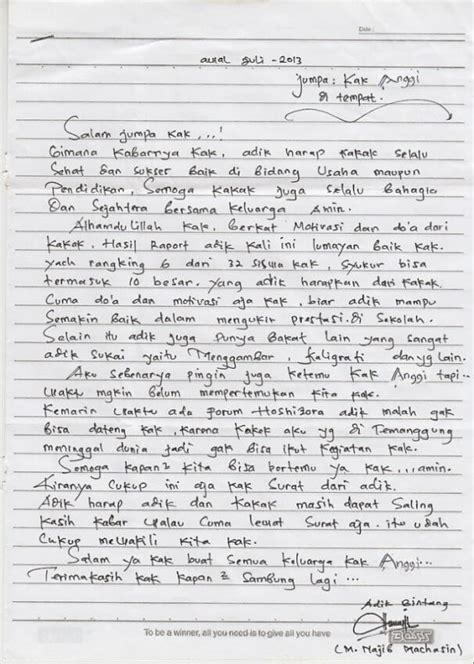 Date :
awal Juli - 2013
Jumpa : Kak Anggi
di tempat.
Salam jumpa kak,..!
Gimana Kabarnya Kak, adik harap kakak selalu
Sehat dan sukser Baik di Bidang Usaha maupun
Pendidikan, Semoga kakak juga selalu Bahagia
Dan Sejahtera Bersama keluarga Amin.
Alhamdulillah Kak, Berkat. Motivasi dan do'a dari
kakak. Hasil Raport adik kali ini lumayan Baik kak.
yach rangking 6 dari 32 siswa kak, Syukur bisa
termasuk 10 besar, yang adik harapkan dari kakak.
Cuma do'a dan motivasi aja kak, biar adik mampu
Semakin Baik dalam mengukir prestasi di Sekolah.
Selain itu adik juga punya Bakat lain yang sangat
adik sukai yaitu Menggambar, kaligrafi dan yg lain.
Aku sebenarya pingin juga ketemu Kak Anggi tapi..
waktu mgkin Belum mempertemukan kita kak.
Kemarin waktu ada forum Hoshizora adik malah gak
Bisa dateng kak, karena Kakek aku yg di Temanggung
meninggal dunia jadi gak Bisa ikut kegiatan kak.
Semoga kapan2 kita Bisa bertemu ya kak...amin.
Kiranya Cukup ini aja kak Surat dari adik.
Adik harap adik dan Kakak masih dapat Saling
kasih kabar walau Cuma lewat Surat aja. itu udah
Cukup mewakili kita kak.
Salam ya kak buat Semua keluarga kak Anggi...
Terimakasih kak kapan2 Sambung lagi...
Adik Bintang
To be a winner, all you need is to give all you have
(M. Najib Machasin)